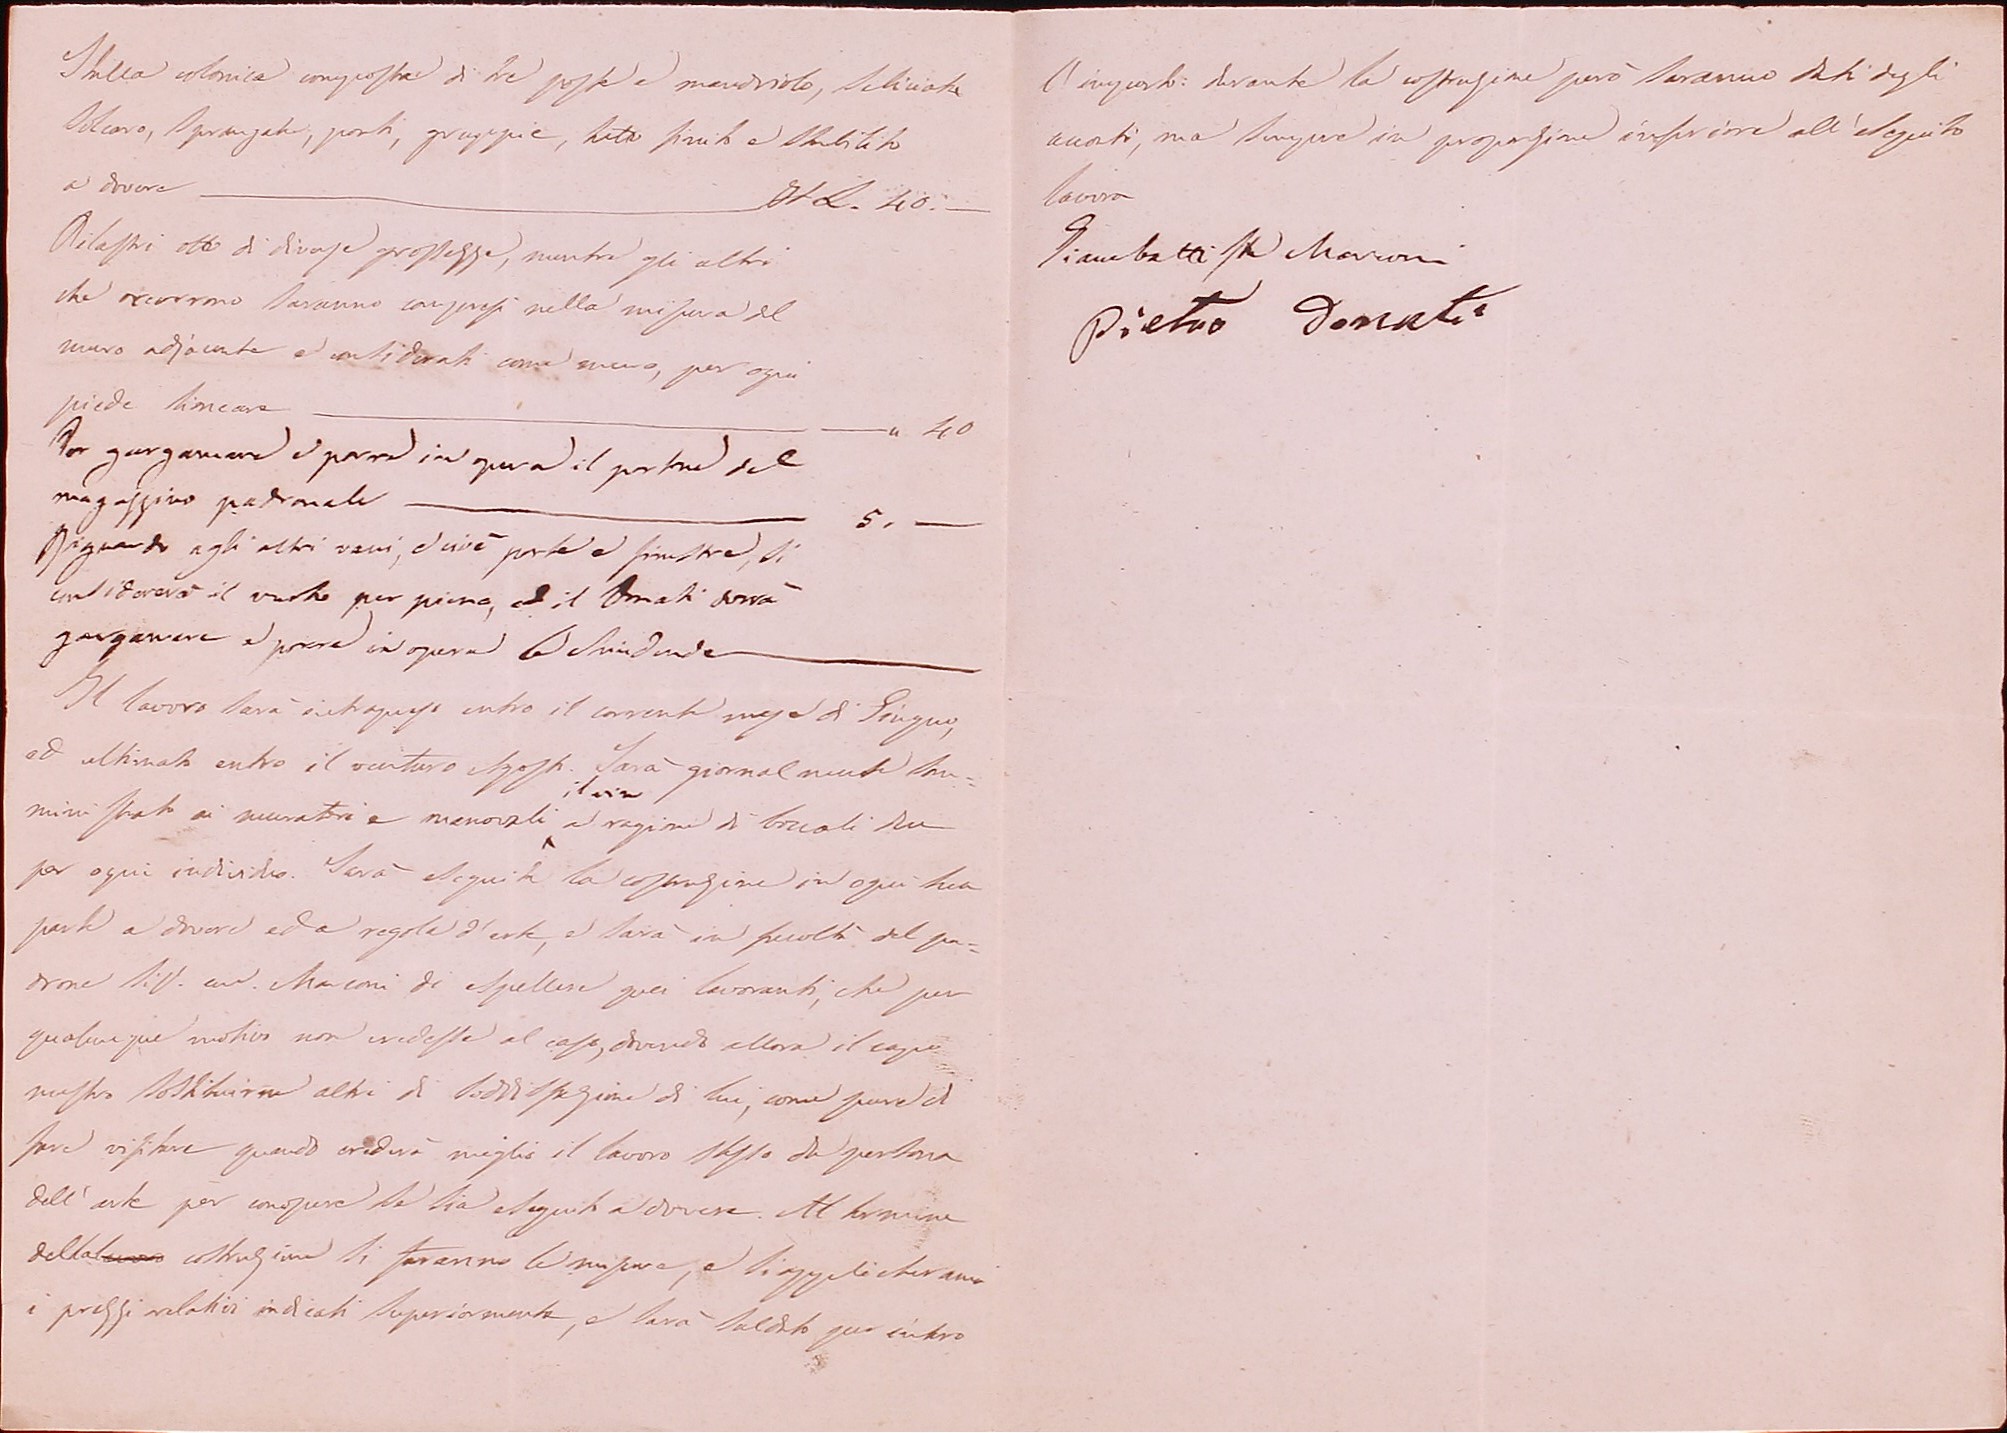 Stalla colonica composta di tre poste e mandriolo, seliciata
solcaro, sprangate, porti, gruppie, tutto finito e stabilito
a dovere ——— It L. 40: —
Pilastri otto di diverse grossezze, mentre gli altri
che occorrono saranno compresi nella misura del
muro adjacente e considerati come muro, per ogni
piede lineare ——— " 40
Per gargamare e porre in opera il portone del
magazzino padronale ——— 5. —
Riguardo agli altri vani, e cioè porte e finestre, si
considererà il vuoto per pieno, ed il Donati dovrà
gargamare e porre in opera le chiudende ———
Il lavoro sarà intrapreso entro il corrente mese di Giugno,
ed ultimato entro il venturo Agosto. Sarà giornalmente som=
ministrato ai muratori e manovali il vino a ragione di boccali due
per ogni individuo. Sarà eseguita la costruzione in ogni sua
parte a dovere ed a regola d'arte, e sarà in facoltà del pa=
drone Sig. avv. Marconi di espellere quei lavoranti, che per
qualunque motivo non credesse al caso, dovendo allora il capo
mastro sostituirne altri di soddisfazione di lui, come pure di
fare visitare quando crederà meglio il lavoro stesso da persona
dell'arte per conoscere se sia eseguito a dovere. Al termine
della costruzione si faranno le misure, e si applicheranno
i prezzi relativi indicati superiormente, e sarà saldato per intero
l'importo: durante la costruzione però saranno dati degli
acconti, ma sempre in proporzione inferiore all'eseguito
lavoro
Giambattista Marconi
Pietro Donati